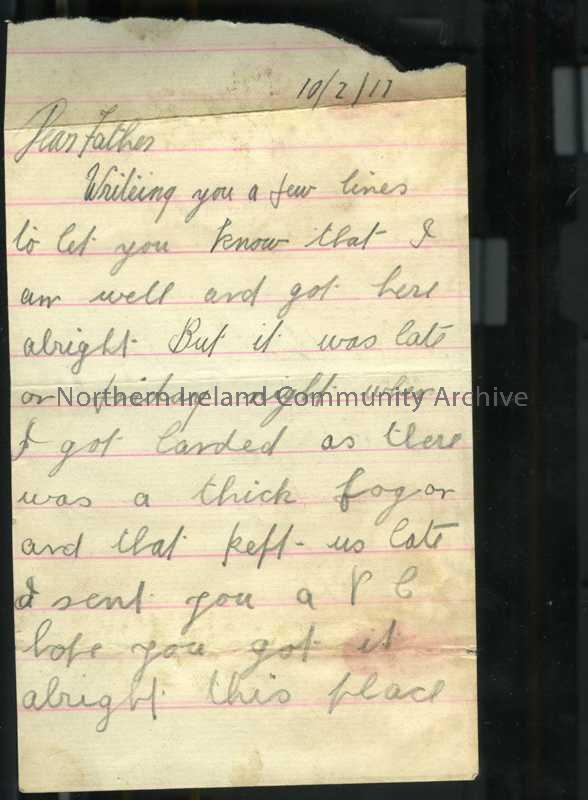 10/2/17
Dear Father
Writeing you a few lines
to let you know that I
am well and got here
alright. But it was late
on friday night when
Northern Ireland Community Archive
I got landed as there
was a thick fog on
and that kept us late
I sent you a P C
hope you got it
alright this place